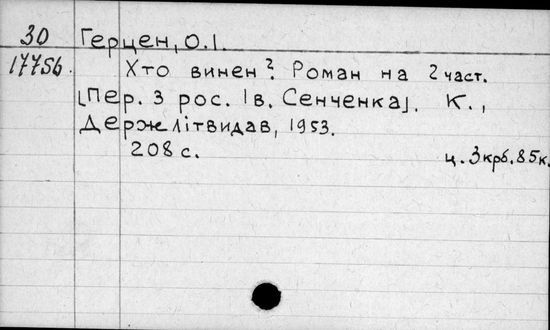 30 Герцен, О.І.
17756. Хто винен? Роман на 2 част.
[Пер. з рос. Ів. Сенченка]. К.,
Держлітвидав, 1953.
208 с. ц. 3 крб. 85 к.